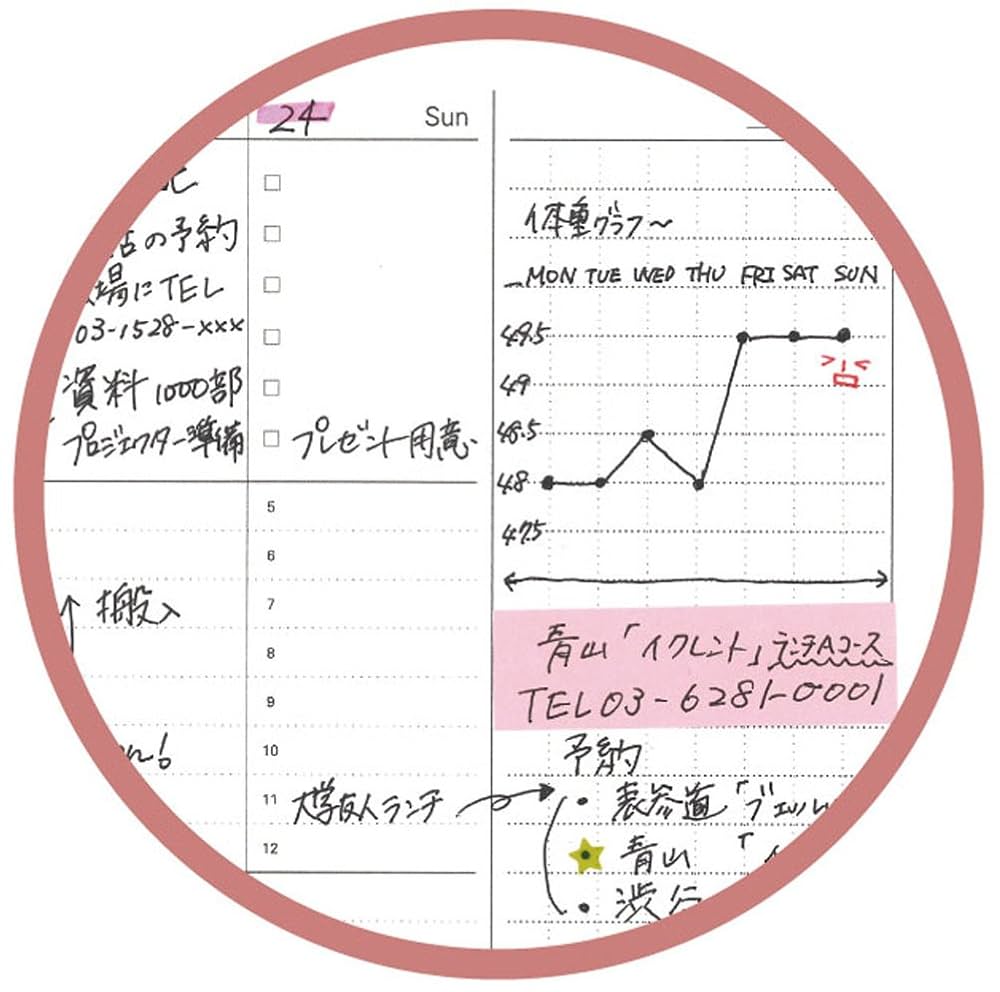 24 Sun
の予約
場にTEL
03-1528-xxx
資料1000部
プロジェクター準備
プレゼント用意
5
6
7
8
9
10
11
12
搬入
大学友人ランチ
体重グラフ〜
MON TUE WED THU FRI SAT SUN
49.5
49
48.5
48
47.5
青山「イクレント」ランチAコース
TEL03-6281-0001
予約
・表参道「ヴェル
青山「イ
・渋谷